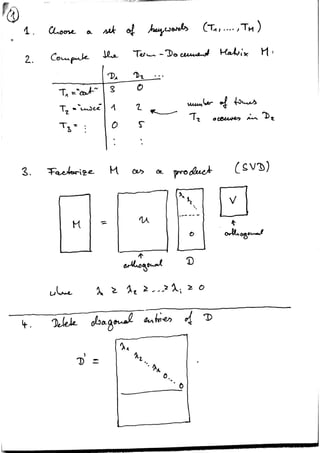 ①
1. Choose a set of keywords (T₁, ...., T_M)
2. Compute the Term-Document Matrix M:
D₁ D₂ ...
T₁ = "cat" 3 0
T₂ = "mice" 1 2 ← number of times
T₃ = : 0 5 T₂ occurs in D₂
: :
3. Factorize M as a product (SVD)
M = U λ₁ λ₂ 0 V
orthogonal D orthogonal
where λ₁ ≥ λ₂ ≥ ... ≥ λᵢ ≥ 0
4. Delete diagonal entries of D
D' = λ₁ λ₂ ... λₖ 0 ... 0